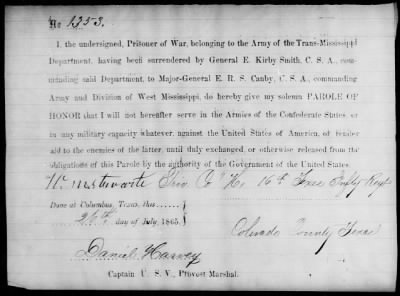 No 1253.
I, the undersigned, Prisoner of War, belonging to the Army of the Trans-Mississippi
Department, having been surrendered by General E. Kirby Smith, C. S. A., com-
manding said Department, to Major-General E. R. S. Canby, U. S. A., commanding
Army and Division of West Mississippi, do hereby give my solemn PAROLE OF
HONOR that I will not hereafter serve in the Armies of the Confederate States, or
in any military capacity whatever, against the United States of America, or render
aid to the enemies of the latter, until duly exchanged, or otherwise released from the
obligations of this Parole by the authority of the Government of the United States.
Priv. Co H, 16th Texas Regt
Done at Columbus, Texas, this
26th day of July, 1865.
Colorado County Texas
Daniel Harvey
Captain U. S. V., Provost Marshal.